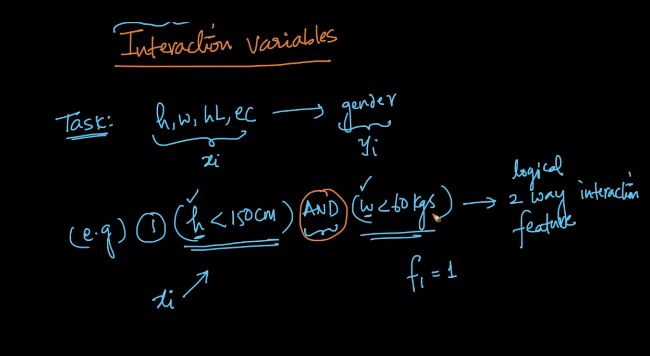 Interaction variables
Task: h, w, hL, ec → gender
xi yi
(e.g) ① (h < 150cm) AND (w < 60 kgs) → logical
2 way interaction
feature
xi f1 = 1